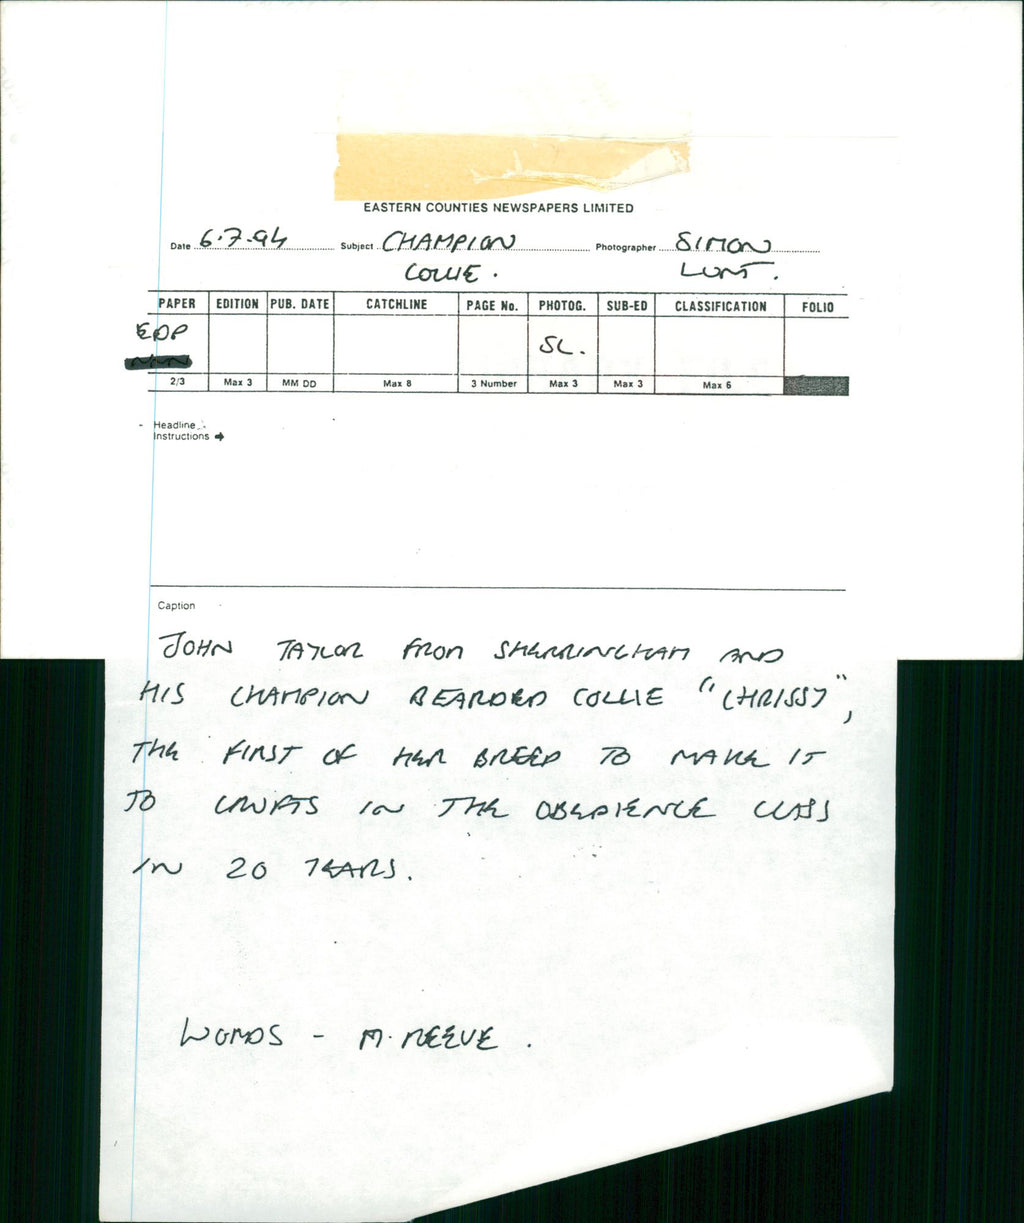 EASTERN COUNTIES NEWSPAPERS LIMITED
Date 6.7.94 Subject CHAMPION Photographer SIMON
COLLIE. LUNT.
PAPER EDITION PUB. DATE CATCHLINE PAGE No. PHOTOG. SUB-ED CLASSIFICATION FOLIO
EDP
SL.
2/3 Max 3 MM DD Max 8 3 Number Max 3 Max 3 Max 6
Headline
Instructions
Caption
JOHN TAYLOR FROM SHERRINGHAM AND
HIS CHAMPION BEARDED COLLIE "CHRISSY",
THE FIRST OF HER BREED TO MAKE IT
TO CRUFTS IN THE OBEDIENCE CLASS
IN 20 YEARS.
WORDS - M. REEVE.